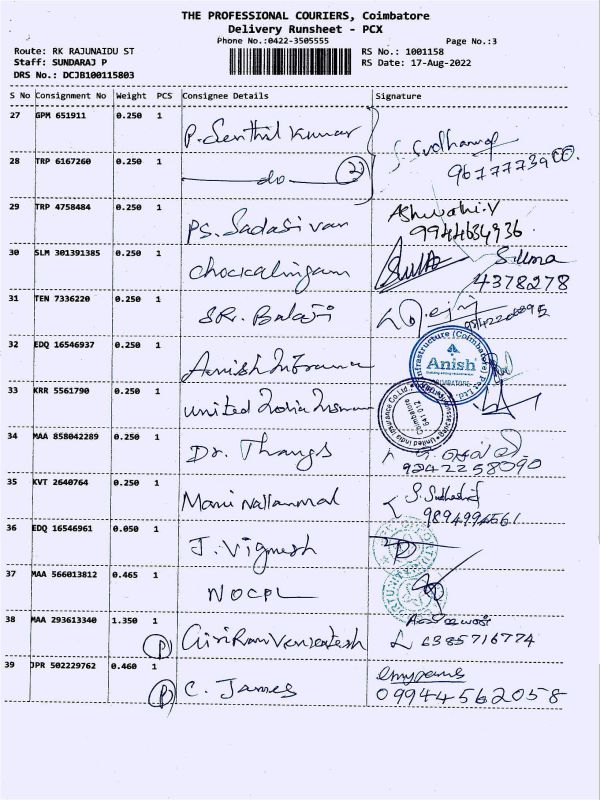 THE PROFESSIONAL COURIERS, Coimbatore
Delivery Runsheet - PCX
Phone No.:0422-3505555
Page No.:3
Route: RK RAJUNAIDU ST
RS No.: 1001158
Staff: SUNDARAJ P
RS Date: 17-Aug-2022
DRS No.: DCJB100115803
S No Consignment No Weight PCS Consignee Details Signature
27 GPM 651911 0.250 1 P. Senthil Kumar
28 TRP 6167260 0.250 1 do (2)
29 TRP 4758484 0.250 1 PS. Sadasivan Ashwathi.V
9944684936
30 SLM 301391385 0.250 1 Chockalingam Suma
4378278
31 TEN 7336220 0.250 1 SR. Balaji
32 EDQ 16546937 0.250 1 Anish Infrance
Infrastructure (Coimbatore) Pvt Ltd.
Anish
COIMBATORE
33 KRR 5561790 0.250 1 United India Insurance
United India Insurance Co Ltd
Coimbatore
641 012
34 MAA 858042289 0.250 1 Dr. Thangs
9242258090
35 KVT 2640764 0.250 1 Mani Nallammal
9894994561
36 EDQ 16546961 0.050 1 J. Vignesh
37 MAA 566013812 0.465 1 NOCPL
38 MAA 293613340 1.350 1 (P) Giri Ram Venkatesh
6385716774
39 JPR 502229762 0.460 1 (P) C. James
09944562058